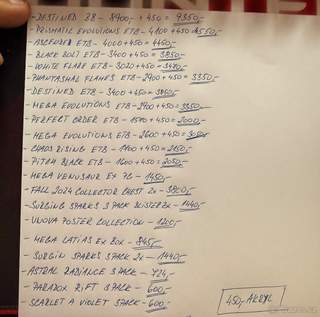 - DESTINED BB - 8900,- +450 = 9350,-
- PRISMATIC EVOLUTIONS ETB - 4100 +450 = 4550,-
- ASCENDED ETB - 4000+450 = 4450,-
- BLACK BOLT ETB - 3400 +450 = 3850,-
- WHITE FLARE ETB - 3020 +450 = 3470,-
- PHANTASMAL FLAMES ETB - 2900 +450 = 3350,-
- DESTINED ETB - 3400 +450 = 3850,-
- MEGA EVOLUTIONS ETB - 2900 +450 = 3350,-
- PERFECT ORDER ETB - 1550 +450 = 2000,-
- MEGA EVOLUTIONS ETB - 2600 +450 = 3050,-
- CHAOS RISING ETB - 1700 +450 = 2150,-
- PITCH BLACK ETB - 1600 +450 = 2050,-
- MEGA VENUSAUR EX PC - 1450,-
- FALL 2024 COLLECTOR CHEST 2x - 3800,-
- SURGING SPARKS 3 PACK BLISTER 2x - 1440,-
- UNOVA POSTER COLLECTION - 1200,-
- MEGA LATIAS EX BOX - 845,-
- SURGIN SPARKS 3 PACK 2x - 1440,-
- ASTRAL RADIANCE 3 PACK - 724,-
- PARADOX RIFT 3 PACK - 600,-
- SCARLET A VIOLET 3 PACK - 600,-
450,- AKRYL